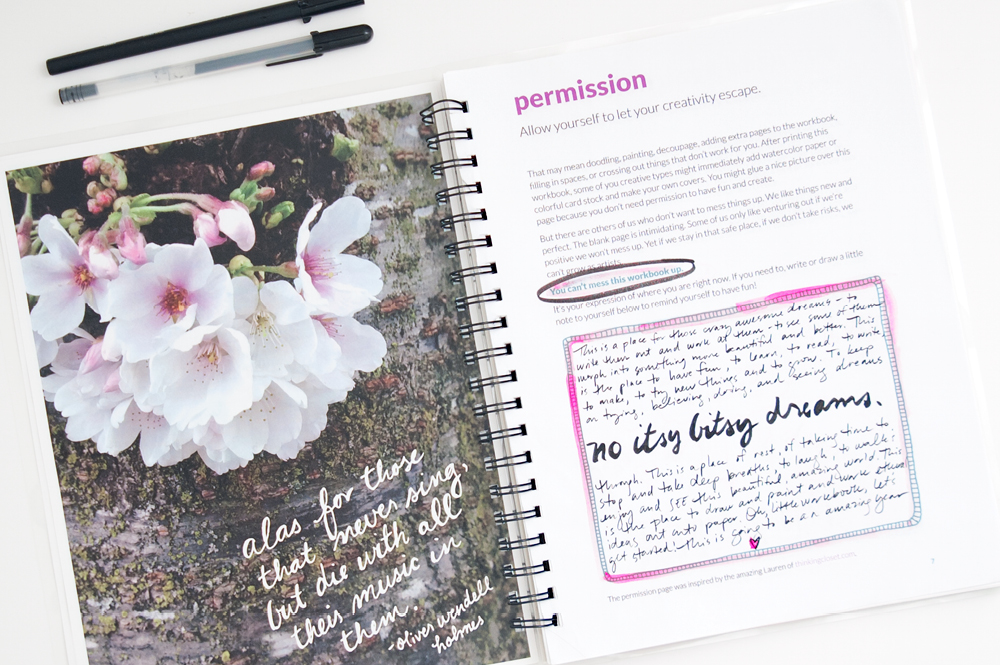 alas for those
that never sing,
but die with all
their music in
them.
-oliver wendell
holmes
permission
Allow yourself to let your creativity escape.
That may mean doodling, painting, decoupage, adding extra pages to the workbook,
filling in spaces, or crossing out things that don't work for you. After printing this
workbook, some of you creative types might immediately add watercolor paper or
colorful card stock and make your own covers. You might glue a nice picture over this
page because you don't need permission to have fun and create.
But there are others of us who don't want to mess things up. We like things new and
perfect. The blank page is intimidating. Some of us only like venturing out if we're
positive we won't mess up. Yet if we stay in that safe place, if we don't take risks, we
can't grow as artists.
You can't mess this workbook up.
It's your expression of where you are right now. If you need, write or draw a little
note to yourself below to remind yourself to have fun!
This is a place for those crazy awesome dreams - to
write them out and work at them - to see some of them
morph into something more beautiful and better. This
is the place to have fun, to learn, to read, to write
to make, to try new things and to grow. To keep
on trying, believing, doing, and seeing dreams
no itsy bitsy dreams.
through. This is a place of rest, of taking time to
stop and take deep breaths, to laugh, to walk &
enjoy and SEE this beautiful, amazing world. This
is the place to draw and paint and work
ideas out onto paper. Oh, little workbook, let's
get started! This is going to be an amazing year
The permission page was inspired by the amazing Lauren of thinkingcloset.com.
7